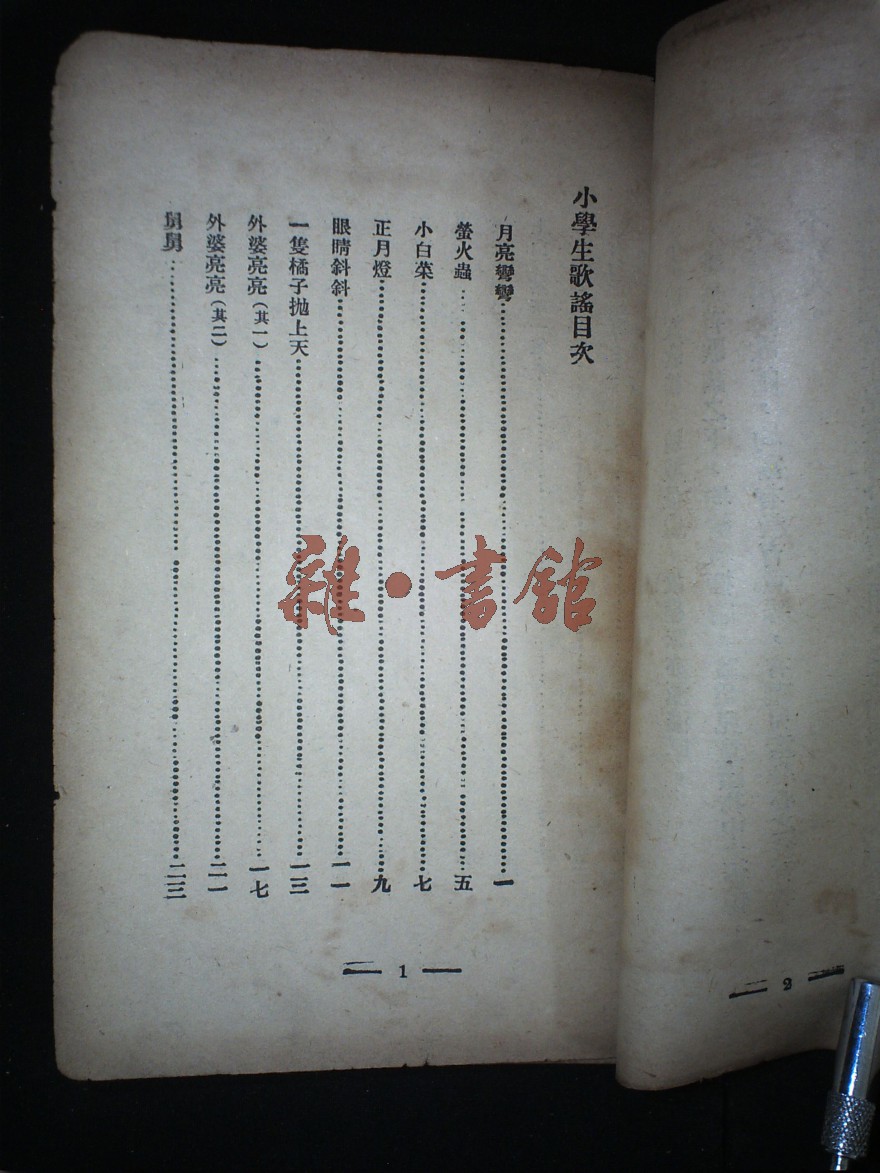 小學生歌謠目次
月亮彎彎……一
螢火蟲……五
小白菜……七
正月燈……九
眼睛斜斜……一一
一隻橘子拋上天……一三
外婆亮亮（其一）……一七
外婆亮亮（其二）……二一
舅舅……二三
— 1 —
— 2 —
雜·書館